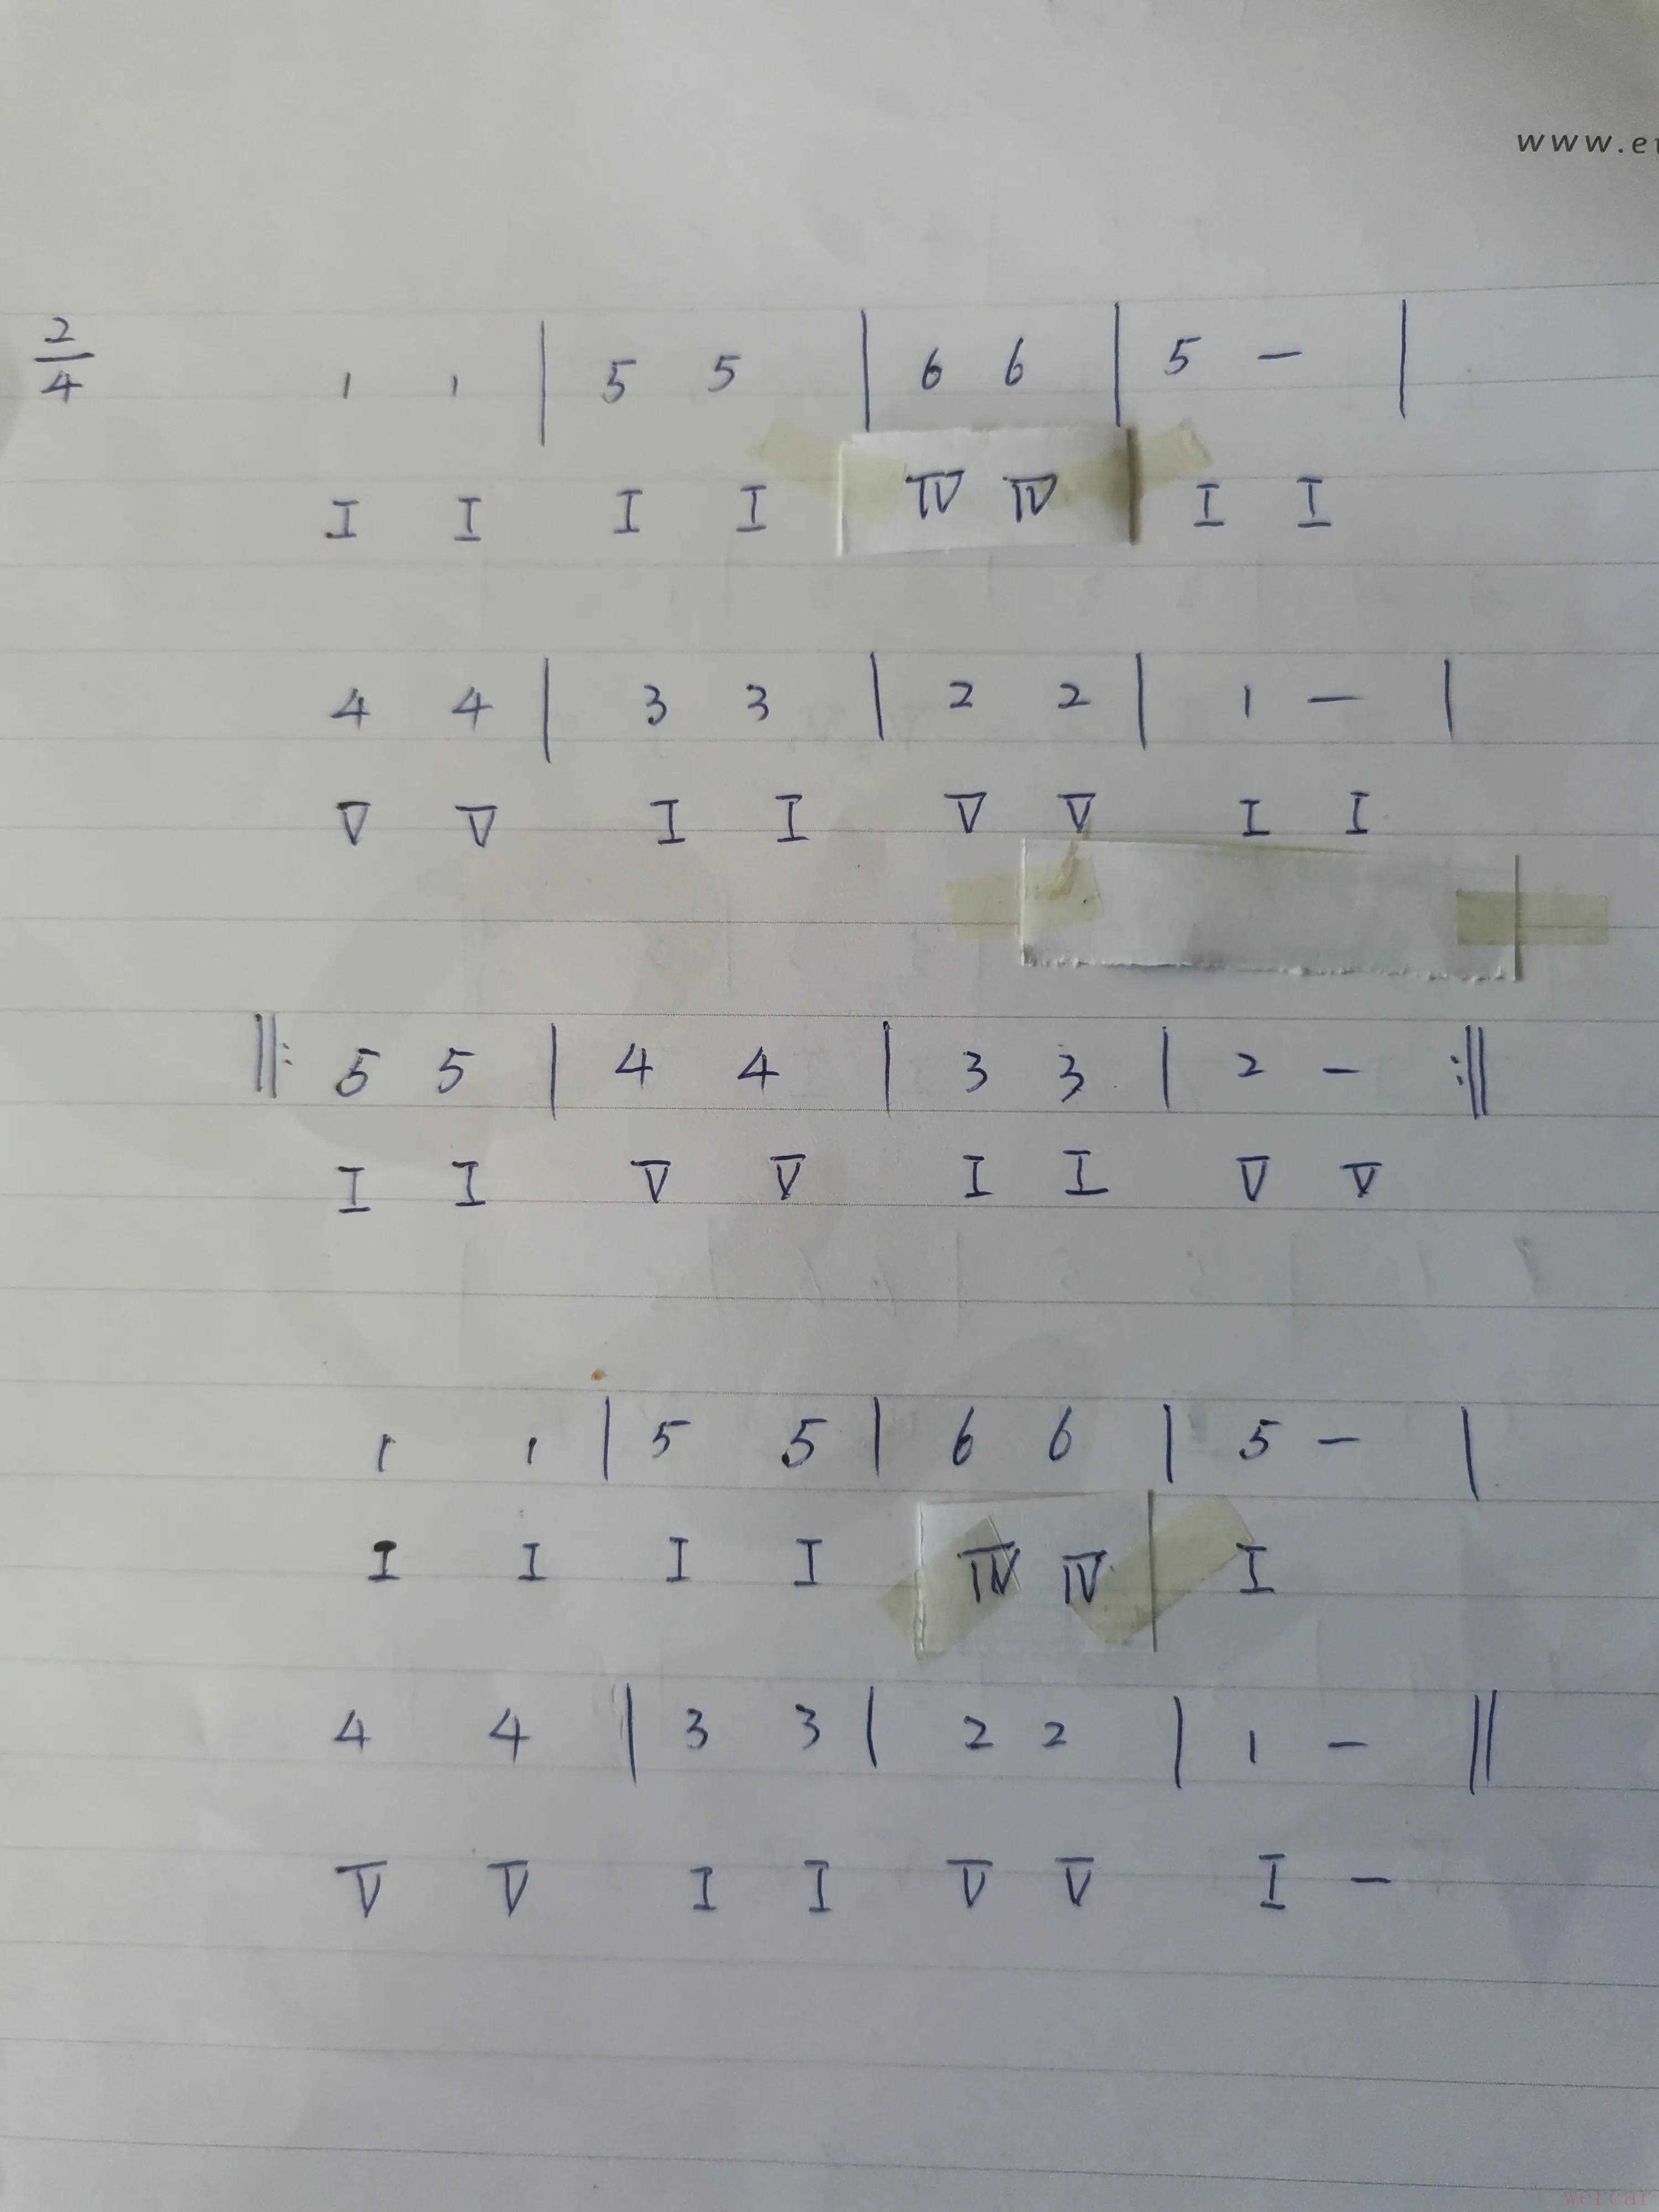 www.e
2/4 1 1 | 5 5 | 6 6 | 5 — |
I I I I IV IV I I
4 4 | 3 3 | 2 2 | 1 — |
V V I I V V I I
‖: 5 5 | 4 4 | 3 3 | 2 — :‖
I I V V I I V V
1 1 | 5 5 | 6 6 | 5 — |
I I I I IV IV I
4 4 | 3 3 | 2 2 | 1 — ‖
V V I I V V I —